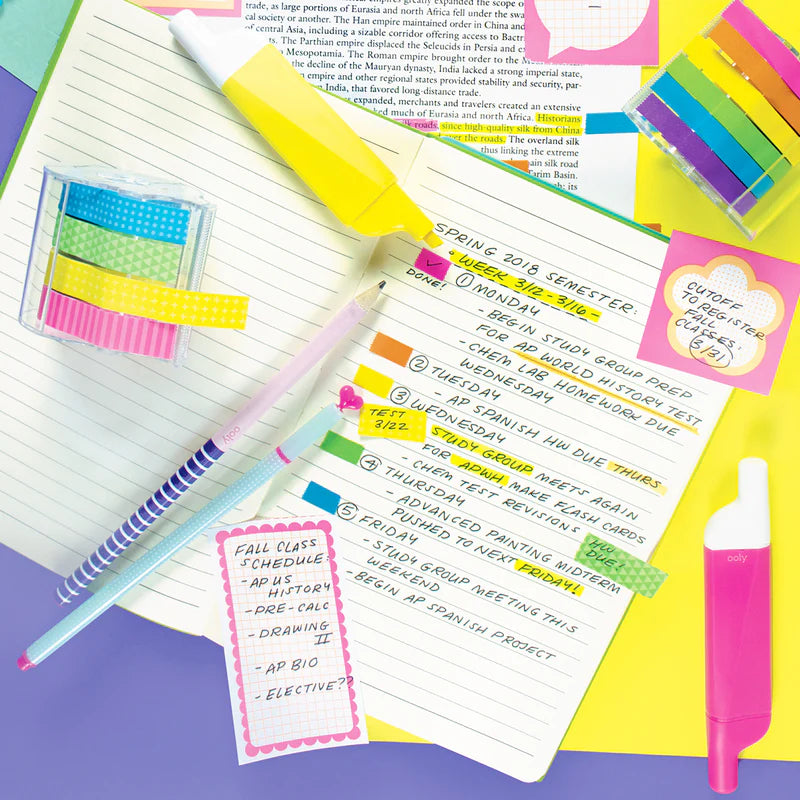 expanded the scope of
trade, as large portions of Eurasia and north Africa fell under the swa
cal society or another. The Han empire maintained order in China and
of central Asia, including a sizable corridor offering access to Bactr
The Parthian empire displaced the Seleucids in Persia and e
Mesopotamia. The Roman empire brought order to the
the decline of the Mauryan dynasty, India lacked a strong imperial state,
empire and other regional states provided stability and security, par-
India, that favored long-distance trade.
expanded, merchants and travelers created an extensive
ked much of Eurasia and north Africa. Historians
roads, since high-quality silk from China
over the roads. The overland silk
thus linking the extreme
silk road
Tarim Basin.
its
SPRING 2018 SEMESTER:
• WEEK 3/12-3/16-
DONE!
① MONDAY
- BEGIN STUDY GROUP PREP
FOR AP WORLD HISTORY TEST
WEDNESDAY
- CHEM LAB HOMEWORK DUE
② TUESDAY
- AP SPANISH HW DUE THURS.
③ WEDNESDAY
TEST
3/22
STUDY GROUP MEETS AGAIN
FOR APWH, MAKE FLASH CARDS
- CHEM TEST REVISIONS
④ THURSDAY
- ADVANCED PAINTING MIDTERM
PUSHED TO NEXT FRIDAY!
HW
DUE!
⑤ FRIDAY
- STUDY GROUP MEETING THIS
WEEKEND
- BEGIN AP SPANISH PROJECT
CUTOFF
TO REGISTER
FALL
CLASSES:
3/31
FALL CLASS
SCHEDULE:
- AP US
HISTORY
- PRE-CALC
- DRAWING
II
- AP BIO
- ELECTIVE??
ooly
ooly